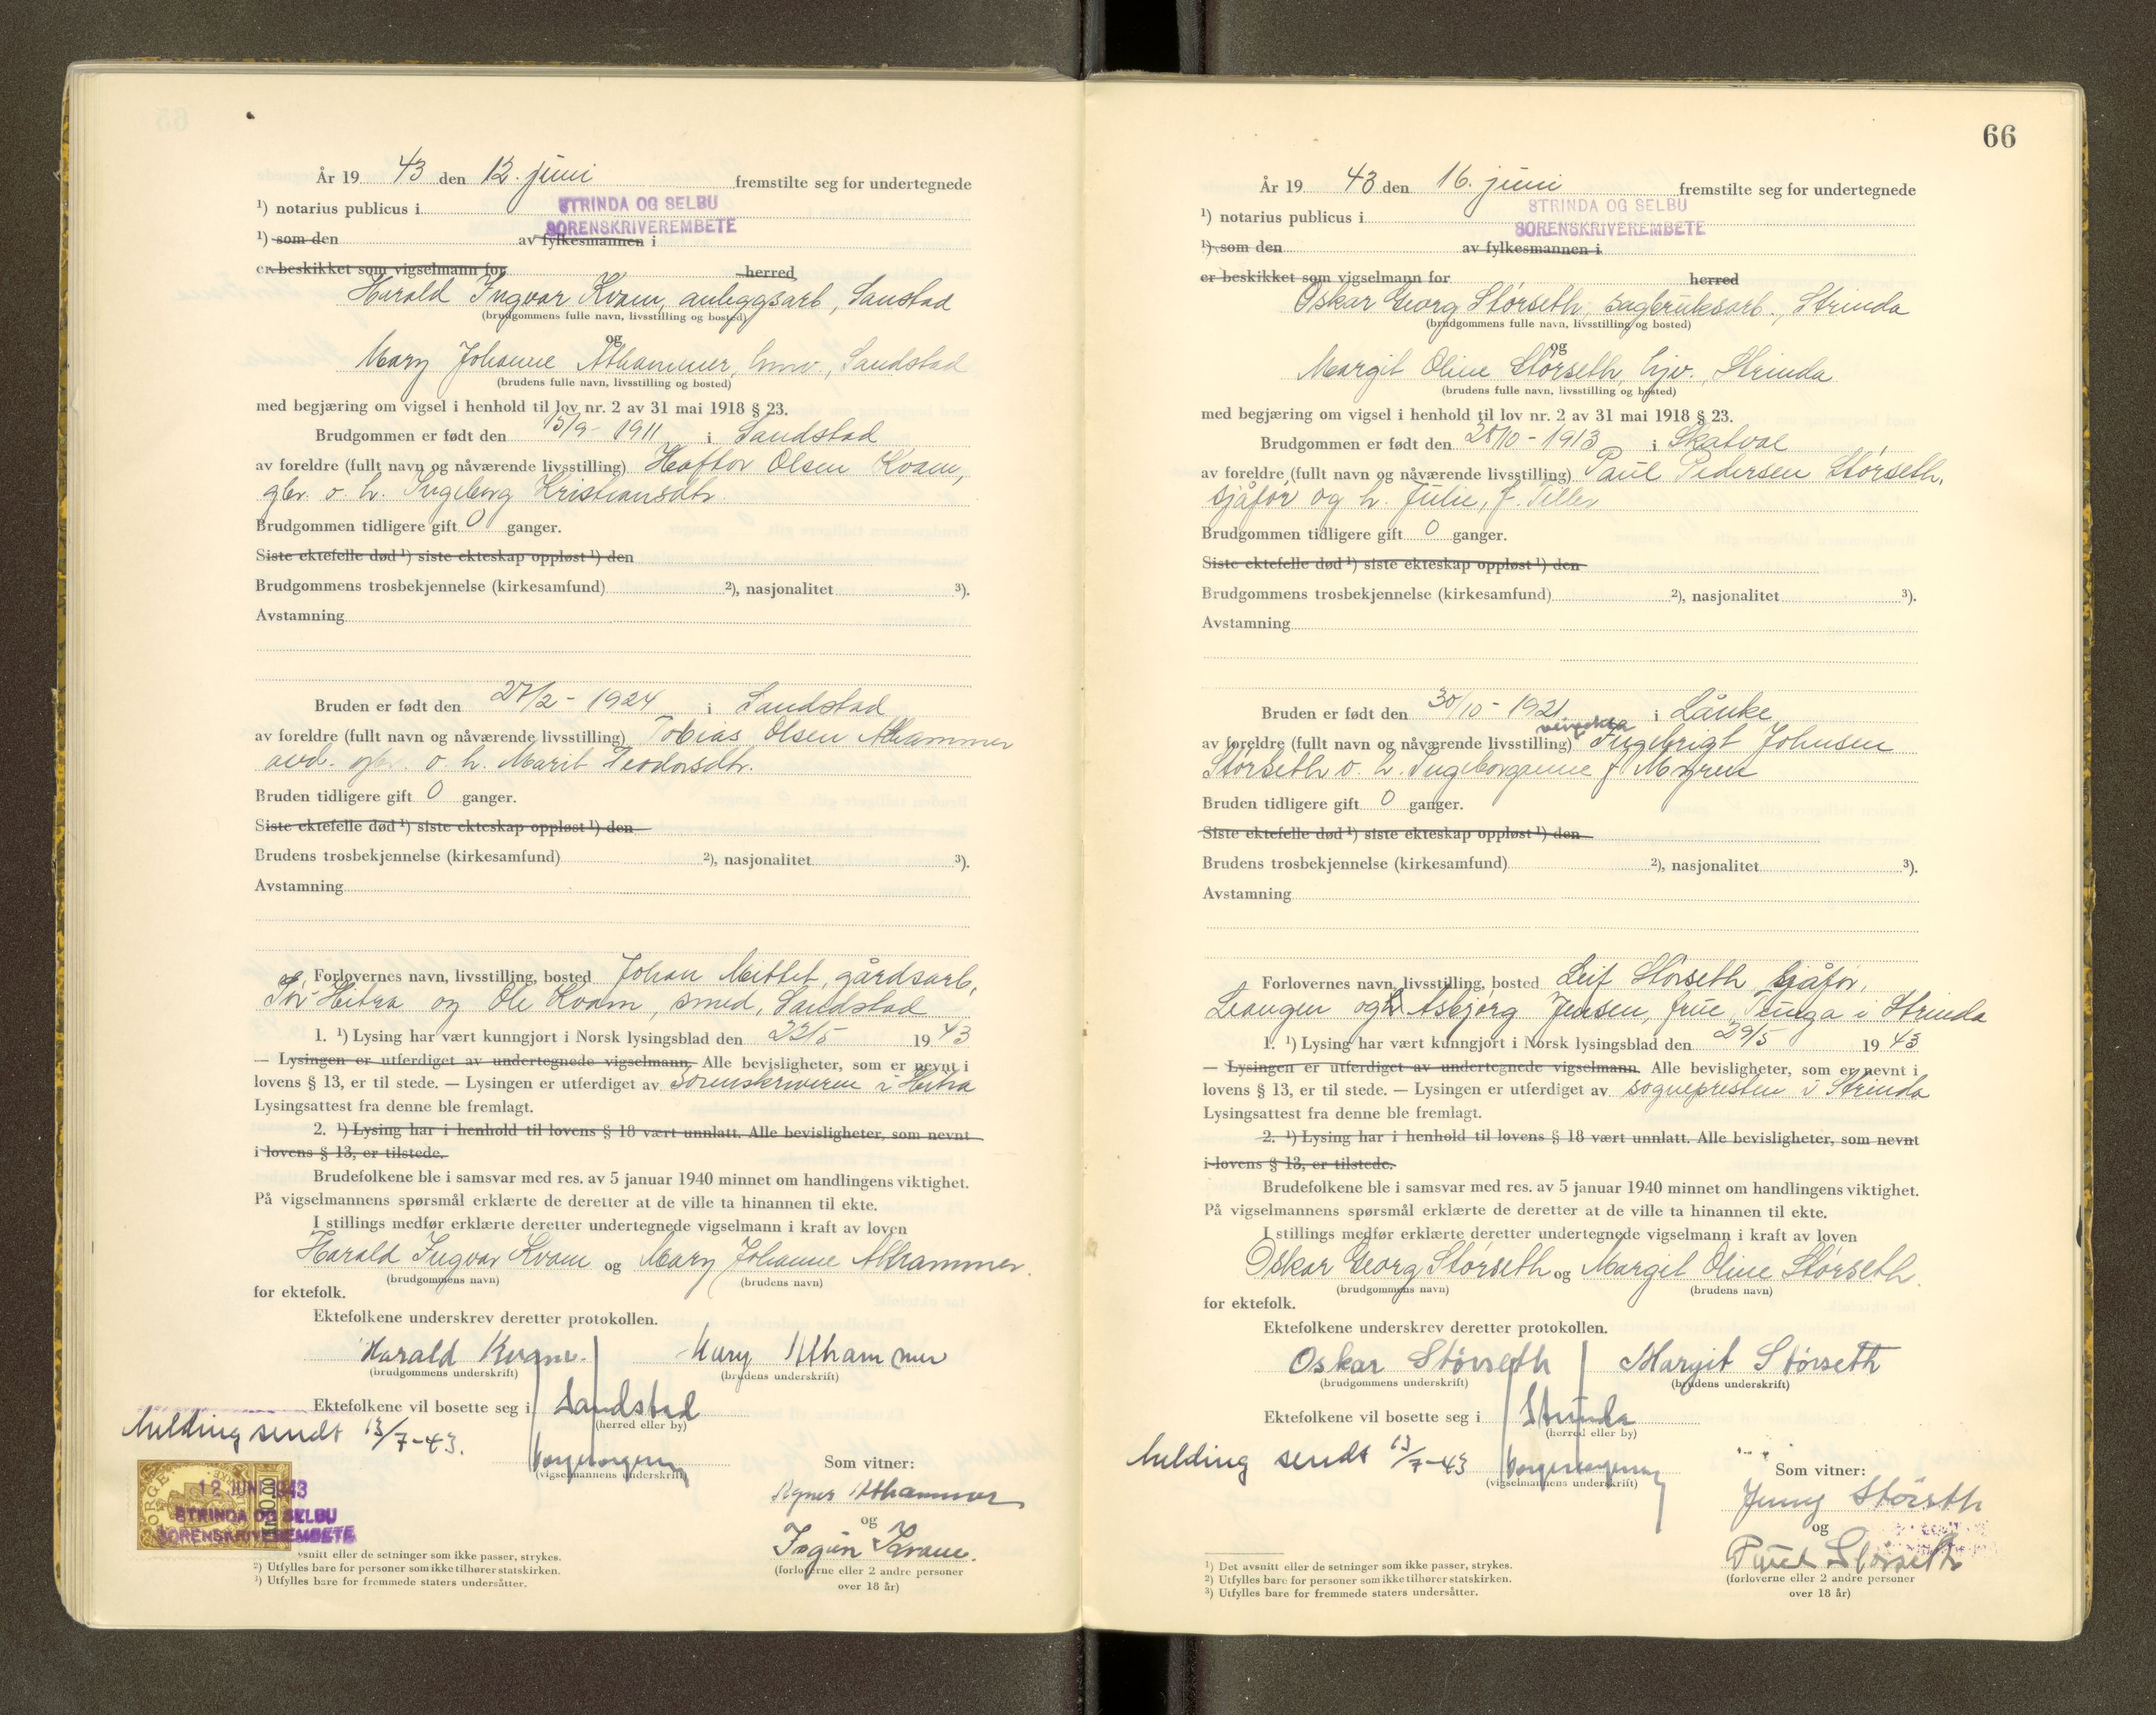 År 19 43 den 12. juni fremstilte seg for undertegnede
¹) notarius publicus i STRINDA OG SELBU
SORENSKRIVEREMBETE
¹) som den av fylkesmannen i
er beskikket som vigselmann for herred
Harald Ingvar Kvam, anleggsarb, Sanstad
(brudgommens fulle navn, livsstilling og bosted)
og
Mary Johanne Althammer, hmv., Sandstad
(brudens fulle navn, livsstilling og bosted)
med begjæring om vigsel i henhold til lov nr. 2 av 31 mai 1918 § 23.
Brudgommen er født den 15/9 - 1911 i Sandstad
av foreldre (fullt navn og nåværende livsstilling) Haftor Olsen Kvam,
gbr. o. h. Ingeborg Kristiansdtr.
Brudgommen tidligere gift 0 ganger.
Siste ektefelle død ¹) siste ekteskap oppløst ¹) den
Brudgommens trosbekjennelse (kirkesamfund) ²), nasjonalitet ³).
Avstamning
Bruden er født den 27/2 - 1924 i Sandstad
av foreldre (fullt navn og nåværende livsstilling) Tobias Olsen Althammer
o. h. Marit Teodorsdtr.
Bruden tidligere gift 0 ganger.
Siste ektefelle død ¹) siste ekteskap oppløst ¹) den
Brudens trosbekjennelse (kirkesamfund) ²), nasjonalitet ³).
Avstamning
Forlovernes navn, livsstilling, bosted Johan Mittet, gårdsarb,
Sør-Hitra og Ole Kvam, smed, Sandstad
1. ¹) Lysing har vært kunngjort i Norsk lysingsblad den 22/5 19 43
— Lysingen er utferdiget av undertegnede vigselmann. Alle bevisligheter, som er nevnt i
lovens § 13, er til stede. — Lysingen er utferdiget av Sorenskriveren i Hitra
Lysingsattest fra denne ble fremlagt.
2. ¹) Lysing har i henhold til lovens § 18 vært unnlatt. Alle bevisligheter, som nevnt
i lovens § 13, er tilstede.
Brudefolkene ble i samsvar med res. av 5 januar 1940 minnet om handlingens viktighet.
På vigselmannens spørsmål erklærte de deretter at de ville ta hinannen til ekte.
I stillings medfør erklærte deretter undertegnede vigselmann i kraft av loven
Harald Ingvar Kvam og Mary Johanne Althammer.
(brudgommens navn) (brudens navn)
for ektefolk.
Ektefolkene underskrev deretter protokollen.
Harald Kvam. Mary Althammer
(brudgommens underskrift) (brudens underskrift)
Ektefolkene vil bosette seg i Sandstad
(herred eller by)
Melding sendt 13/7-43.
(vigselmannens underskrift)
Som vitner:
Agnes Althammer
og
Ingun Kvam.
(forloverne eller 2 andre personer
over 18 år)
NORGE
12 JUNI 1943
STRINDA OG SELBU
SORENSKRIVEREMBETE
vsnitt eller de setninger som ikke passer, strykes.
²) Utfylles bare for personer som ikke tilhører statskirken.
³) Utfylles bare for fremmede staters undersåtter.
66
År 19 43 den 16. juni fremstilte seg for undertegnede
¹) notarius publicus i STRINDA OG SELBU
SORENSKRIVEREMBETE
¹) som den av fylkesmannen i
er beskikket som vigselmann for herred
Oskar Georg Størseth, sagbruksarb., Strinda
(brudgommens fulle navn, livsstilling og bosted)
og
Margit Oline Størseth, hjv., Strinda
(brudens fulle navn, livsstilling og bosted)
med begjæring om vigsel i henhold til lov nr. 2 av 31 mai 1918 § 23.
Brudgommen er født den 28/10 - 1913 i Skatval
av foreldre (fullt navn og nåværende livsstilling) Paul Pedersen Størseth,
sjåfør og h. Julie, f. Tiller
Brudgommen tidligere gift 0 ganger.
Siste ektefelle død ¹) siste ekteskap oppløst ¹) den
Brudgommens trosbekjennelse (kirkesamfund) ²), nasjonalitet ³).
Avstamning
Bruden er født den 30/10 - 1921 i Lånke
av foreldre (fullt navn og nåværende livsstilling) Ingebrigt Johnsen
Størseth o. h. Ingeborganne f. Myren
Bruden tidligere gift 0 ganger.
Siste ektefelle død ¹) siste ekteskap oppløst ¹) den
Brudens trosbekjennelse (kirkesamfund) ²), nasjonalitet ³).
Avstamning
Forlovernes navn, livsstilling, bosted Leif Størseth, sjåfør,
Leangen og Asbjørg Jensen, frue, Tunga i Strinda
1. ¹) Lysing har vært kunngjort i Norsk lysingsblad den 29/5 19 43
— Lysingen er utferdiget av undertegnede vigselmann. Alle bevisligheter, som er nevnt i
lovens § 13, er til stede. — Lysingen er utferdiget av sognepresten i Strinda
Lysingsattest fra denne ble fremlagt.
2. ¹) Lysing har i henhold til lovens § 18 vært unnlatt. Alle bevisligheter, som nevnt
i lovens § 13, er tilstede.
Brudefolkene ble i samsvar med res. av 5 januar 1940 minnet om handlingens viktighet.
På vigselmannens spørsmål erklærte de deretter at de ville ta hinannen til ekte.
I stillings medfør erklærte deretter undertegnede vigselmann i kraft av loven
Oskar Georg Størseth og Margit Oline Størseth.
(brudgommens navn) (brudens navn)
for ektefolk.
Ektefolkene underskrev deretter protokollen.
Oskar Størseth Margit Størseth
(brudgommens underskrift) (brudens underskrift)
Ektefolkene vil bosette seg i Strinda
(herred eller by)
Melding sendt 13/7-43
(vigselmannens underskrift)
Som vitner:
Jenny Størseth
og
Paul Størseth
(forloverne eller 2 andre personer
over 18 år)
¹) Det avsnitt eller de setninger som ikke passer, strykes.
²) Utfylles bare for personer som ikke tilhører statskirken.
³) Utfylles bare for fremmede staters undersåtter.